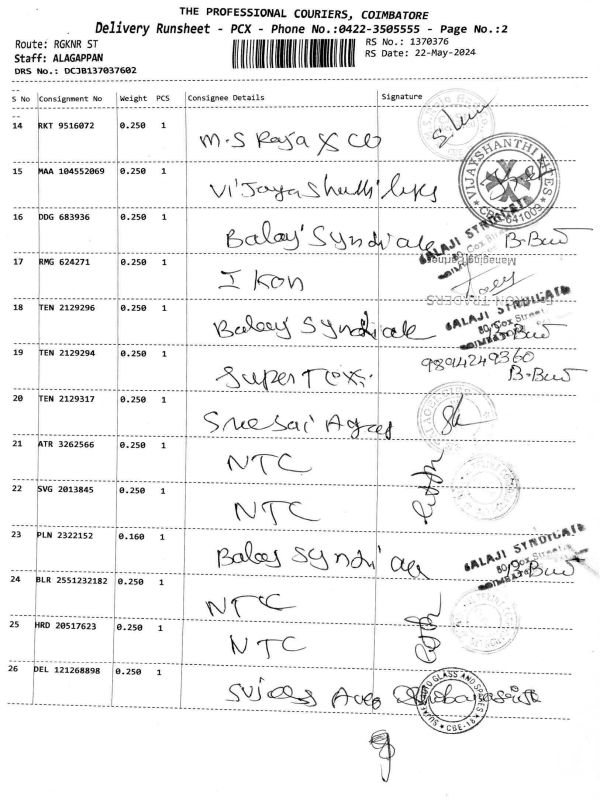 THE PROFESSIONAL COURIERS, COIMBATORE
Delivery Runsheet - PCX - Phone No.:0422-3505555 - Page No.:2
Route: RGKNR ST
RS No.: 1370376
Staff: ALAGAPPAN
RS Date: 22-May-2024
DRS No.: DCJB137037602
S No Consignment No Weight PCS Consignee Details Signature
14 RKT 9516072 0.250 1 M.S Raja & Co
15 MAA 104552069 0.250 1
VIJAYSHANTHI
CBE-641009
16 DDG 683936 0.250 1 Balaji Syndicate
BALAJI SYNDICATE
80, Cox Street
17 RMG 624271 0.250 1 I Kon
Managing Partner
TRADERS
18 TEN 2129296 0.250 1 Balaji Syndicate
BALAJI SYNDICATE
80, Cox Street
COIMBATORE
19 TEN 2129294 0.250 1 Super Tex
9894249360
20 TEN 2129317 0.250 1 Sree Sai
21 ATR 3262566 0.250 1 NTC
22 SVG 2013845 0.250 1 NTC
23 PLN 2322152 0.160 1 Balaji Syndicate
BALAJI SYNDICATE
80, Cox Street
24 BLR 2551232182 0.250 1 NTC
25 HRD 20517623 0.250 1 NTC
26 DEL 121268898 0.250 1
GLASS AND SPARES
CBE-18